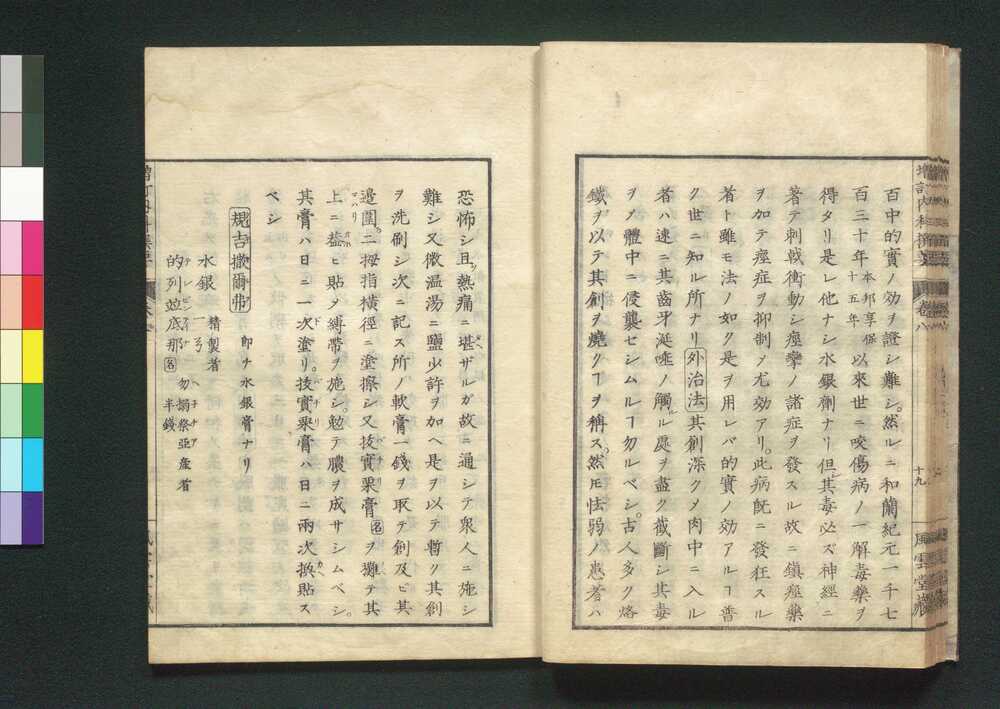 百中的實ノ効ヲ證シ難シ。然ルニ和蘭紀元一千七
百三十年本邦享保十五年以來世ニ咬傷病ノ一解毒藥ヲ
得タリ是レ他ナシ水銀劑ナリ但其毒必ズ神經ニ
著テ刺戟衝動シ痙攣ノ諸症ヲ發スル故ニ鎮痙藥
ヲ加テ痙症ヲ抑制ノ尤効アリ。此病既ニ發狂スル
者ト雖モ法ノ如ク是ヲ用レバ的實ノ効アルヿ普
ク世ニ知ル所ナリ外治法其創深クメ肉中ニ入ル
者ハ速ニ其齒牙涎唾ノ觸ル處ヲ盡ク截斷シ其毒
ヲメ體中ニ侵襲セシムルヿ勿ルベシ。古人多ク烙
鐵ヲ以テ其創ヲ燒クヿヲ稱ス。然𪜈怯弱ノ患者ハ
十九
風雲堂藏
恐怖シ且ツ熱痛ニ堪ヘザルガ故ニ通シテ衆人ニ施シ
難シ又微温湯ニ鹽少許ヲ加ヘ是ヲ以テ暫ク其創
ヲ洗刷シ次ニ記ス所ノ軟膏一錢ヲ取テ創及ビ其
邊圍ニ二拇指横徑ニ塗擦シ又芫實栗膏名ヲ攤テ其
上ニ蓋ヒ貼メ縛帶ヲ施シ。勉テ膿ヲ成サシムベシ。
其膏ハ日ニ一次塗リ。芫實栗膏ハ日ニ兩次換貼ス
ベシ
規吉撒爾弗 即チ水銀膏ナリ
水銀一ヲ 精製者
的列並底那名 勿搦祭亞產者 半錢